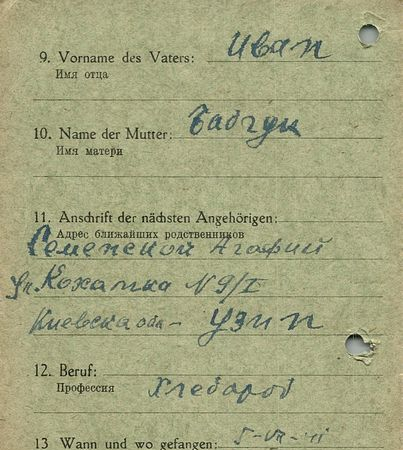 9. Vorname des Vaters: Иван
Имя отца
10. Name der Mutter: Бабгук
Имя матери
11. Anschrift der nächsten Angehörigen:
Адрес ближайших родственников
Семенской Агафии
ул. Кохалка N 9/I
Киевска обл- Узин
12. Beruf: Хлебороб
Профессия
13 Wann und wo gefangen: 5-VII-41